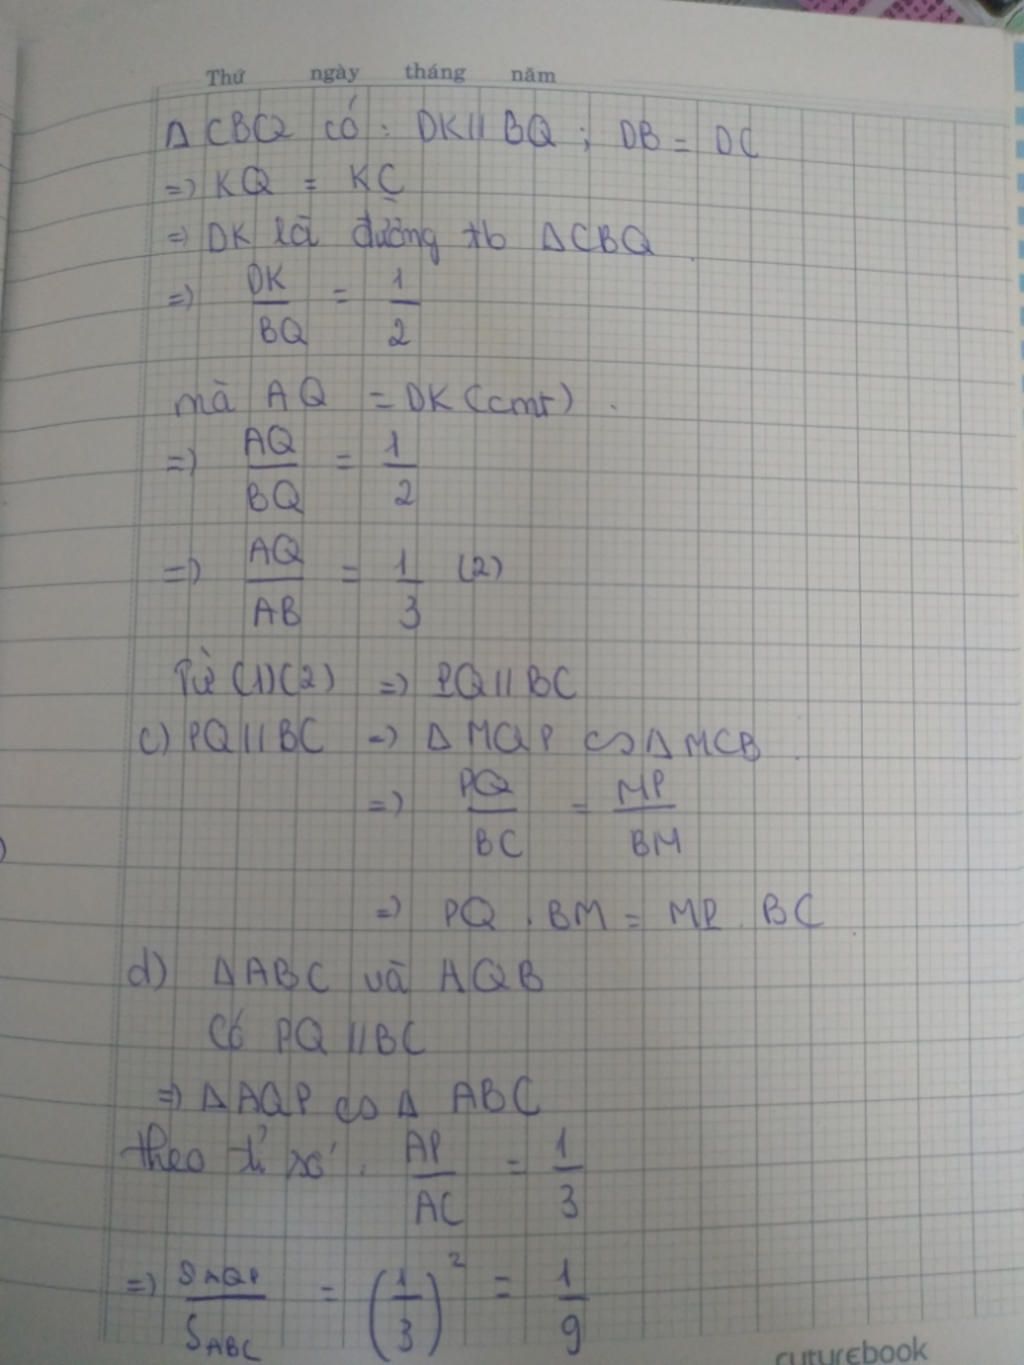 Thứ ngày tháng năm
Δ CBQ có : DK // BQ ; DB = DC
=> KQ = KC
=> DK là đường tb Δ CBQ
=> DK/BQ = 1/2
mà AQ = DK (cmt) .
=> AQ/BQ = 1/2
=> AQ/AB = 1/3 (2)
Từ (1)(2) => PQ // BC
c) PQ // BC => Δ MQP ∽ Δ MCB
=> PQ/BC = MP/BM
=> PQ . BM = MP . BC
d) Δ ABC và AQB
Có PQ // BC
=> Δ AQP ∽ Δ ABC
theo tỉ số . AP/AC = 1/3
=> SAQP/SABC = (1/3)² = 1/9
futurebook